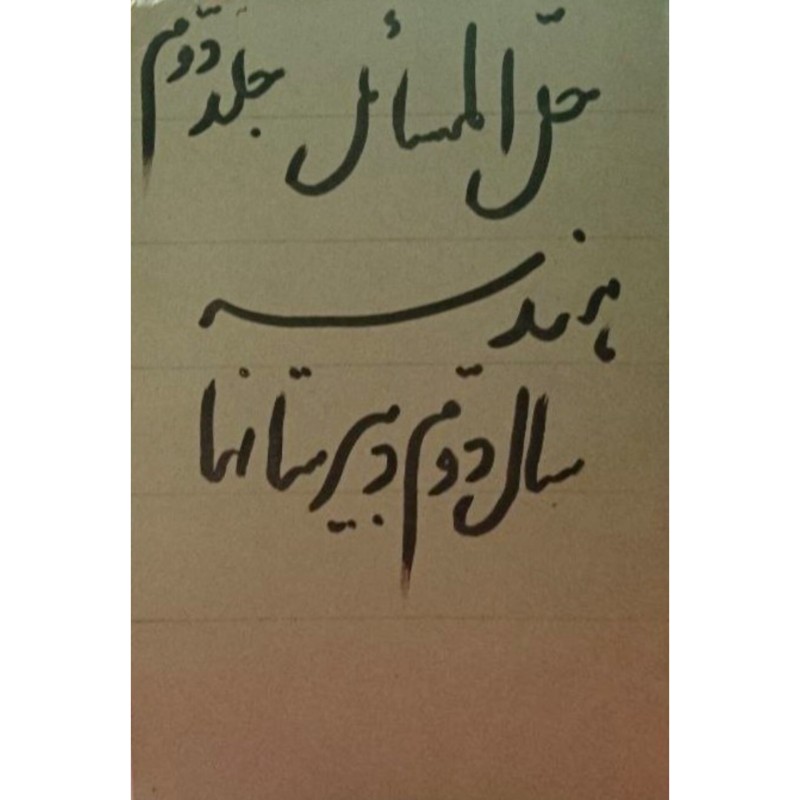 حلّ المسائل جلد دوّم
هندسه
سال دوّم دبیرستانها